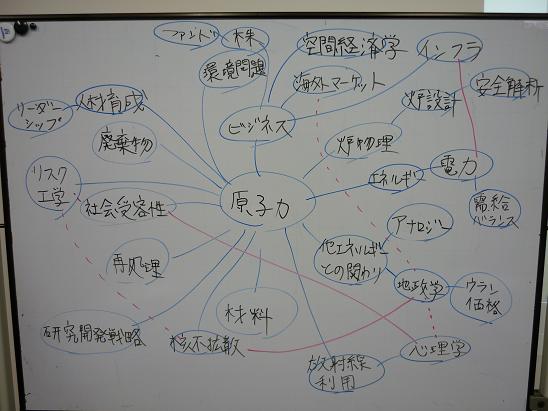 ファンド
株
環境問題
空間経済学
インフラ
海外マーケット
安全解析
リーダー
シップ
人材育成
ビジネス
炉設計
廃棄物
炉物理
リスク
工学
社会受容性
原子力
エネルギー
電力
需給
バランス
アナロジー
他エネルギー
との関わり
再処理
地政学
ウラン
価格
材料
研究開発戦略
核不拡散
放射線
利用
心理学